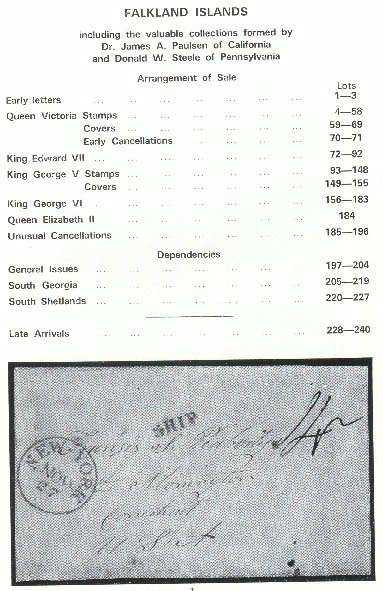 FALKLAND ISLANDS
including the valuable collections formed by
Dr. James A. Paulsen of California
and Donald W. Steele of Pennsylvania
Arrangement of Sale
Lots
Early letters ... ... ... ... ... ... 1—3
Queen Victoria Stamps ... ... ... ... ... ... 4—58
Covers ... ... ... ... ... 59—69
Early Cancellations ... ... ... 70—71
King Edward VII ... ... ... ... ... ... ... 72—92
King George V Stamps ... ... ... ... ... ... 93—148
Covers ... ... ... ... ... 149—155
King George VI ... ... ... ... ... ... 156—183
Queen Elizabeth II ... ... ... ... ... ... 184
Unusual Cancellations ... ... ... ... ... ... 185—196
Dependencies
General Issues ... ... ... ... ... ... 197—204
South Georgia ... ... ... ... ... ... 205—219
South Shetlands ... ... ... ... ... ... 220—227
Late Arrivals ... ... ... ... ... 228—240
SHIP
NEW-YORK
NOV
27
U S A
1